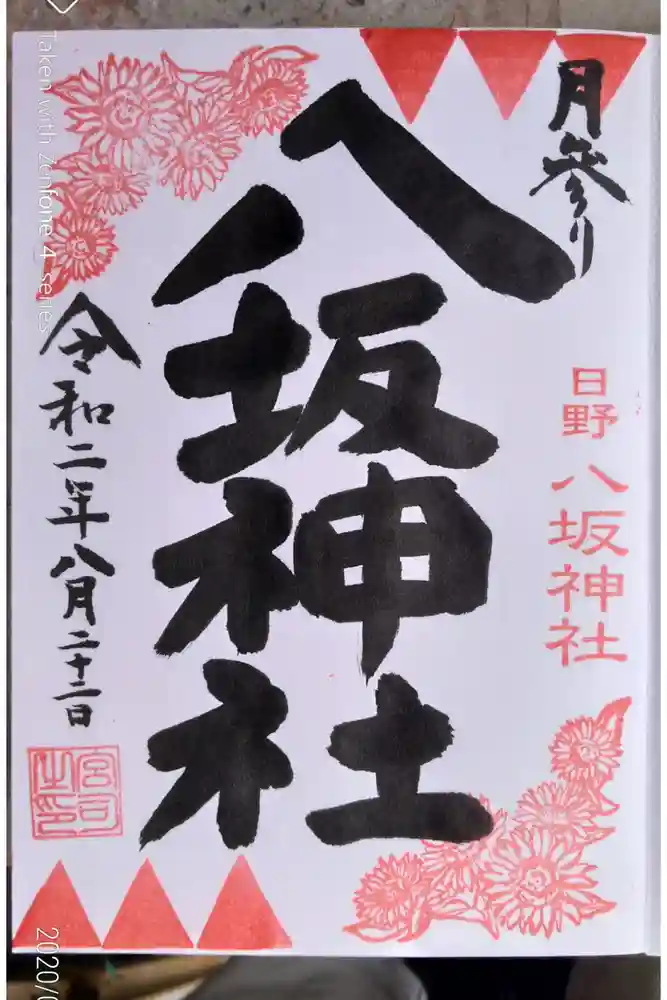 月参り
日野八坂神社
八坂神社
令和二年八月二十二日
宮司之印
Taken with Zenfone 4 series
2020/0